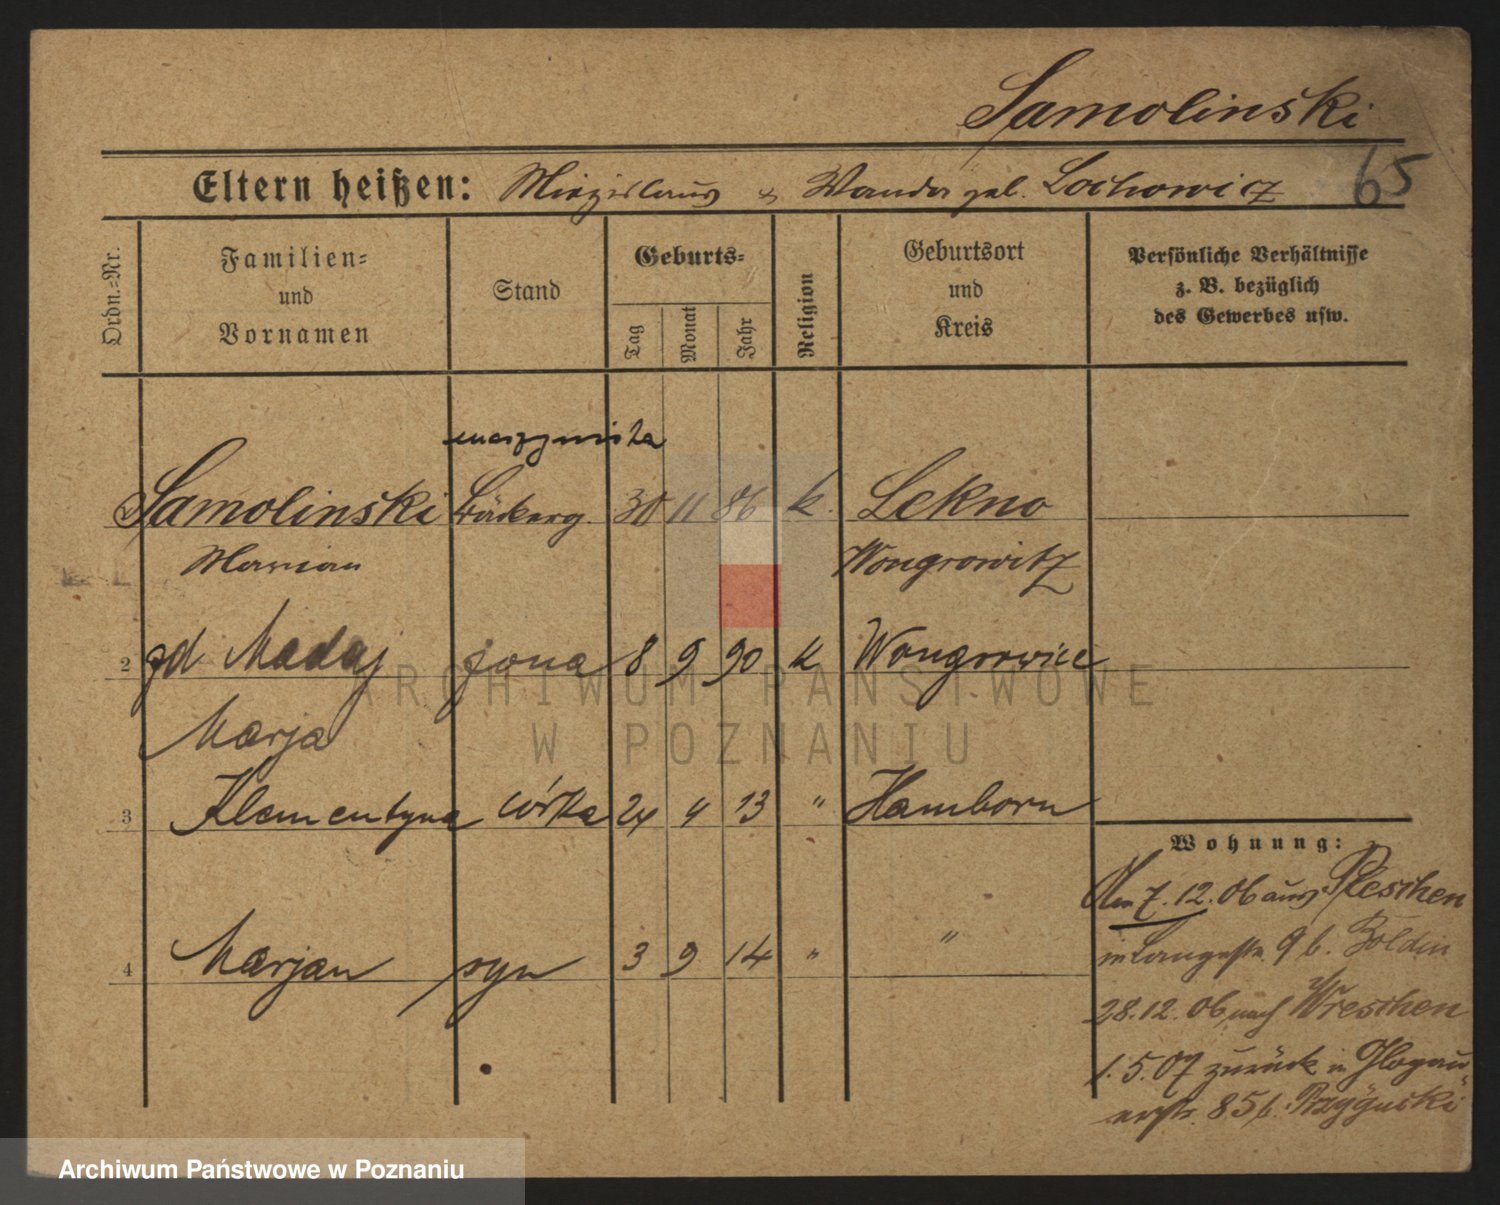 Samolinski
65
Eltern heißen: Miezislaus & Wanda geb. Lochowicz
Ordn.-Nr.
Familien- und Vornamen
Stand
Geburts-
Tag
Monat
Jahr
Religion
Geburtsort und Kreis
Persönliche Verhältnisse
z. B. bezüglich
des Gewerbes usw.
maszynista
Samolinski Bäckerg. 30 11 86 k. Lekno
Marian Wongrowitz
2 zd Madaj żona 8 9 90 k Wongrowiec
Marja
3 Klementyna córka 24 4 13 " Hamborn
4 Marjan syn 3 9 14 " "
Wohnung:
Am 7.12.06 aus Pleschen
in Langestr. 9 b. Zoldin
28.12.06 nach Wreschen
1.5.07 zurück in Glogau-
erstr. 85 b.
ARCHIWUM PAŃSTWOWE
W POZNANIU
Archiwum Państwowe w Poznaniu